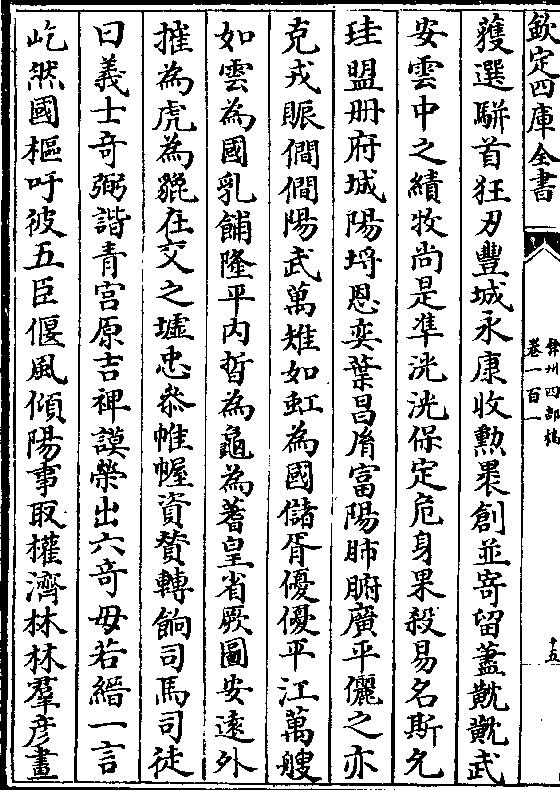 欽定四庫全書
弇州四部稿
卷一百一
十五
蒦選駢首狂刃豐城永康收勲果創並寄留藎觥觥武
安雲中之績牧尚是凖洸洸保定危身果殺易名斯允
珪盟册府城陽埒恩奕葉昌胤富陽肺腑廣平儷之亦
克戎賑僩僩陽武萬雉如虹為國儲胥優優平江萬艘
如雲為國乳餔隆平内哲為龜為蓍皇省厥圖安遠外
摧為虎為貔在交之墟忠叅帷幄資贊轉餉司馬司徒
曰義士奇弼諧青宫原吉裨謨榮出六奇毋若縉一言
屹然國樞吁彼五臣偃風傾陽事取權濟林林羣彦畫